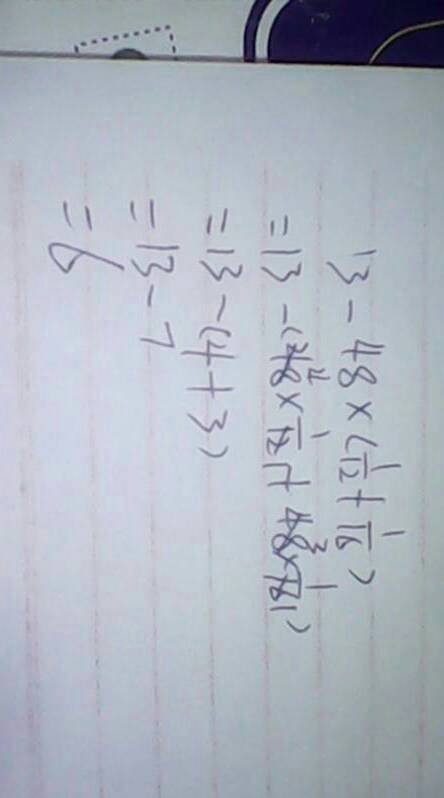 13 - 48 × (1/12 + 1/16)
= 13 - (48 × 1/12 + 48 × 1/16)
= 13 - (4 + 3)
= 13 - 7
= 6